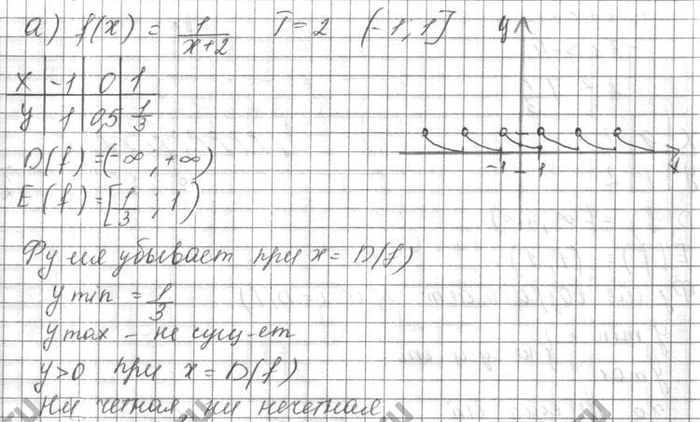 а) f(x) = 1/(x+2) T=2 (-1; 1] y
x | -1 | 0 | 1
y | 1 | 0,5 | 1/3
-1 1 x
D(f) = (-∞; +∞)
E(f) = [1/3; 1)
Ф-ция убывает при x = D(f)
y min = 1/3
y max - не сущ-ет
y>0 при x = D(f)
Ни четная, ни нечетная